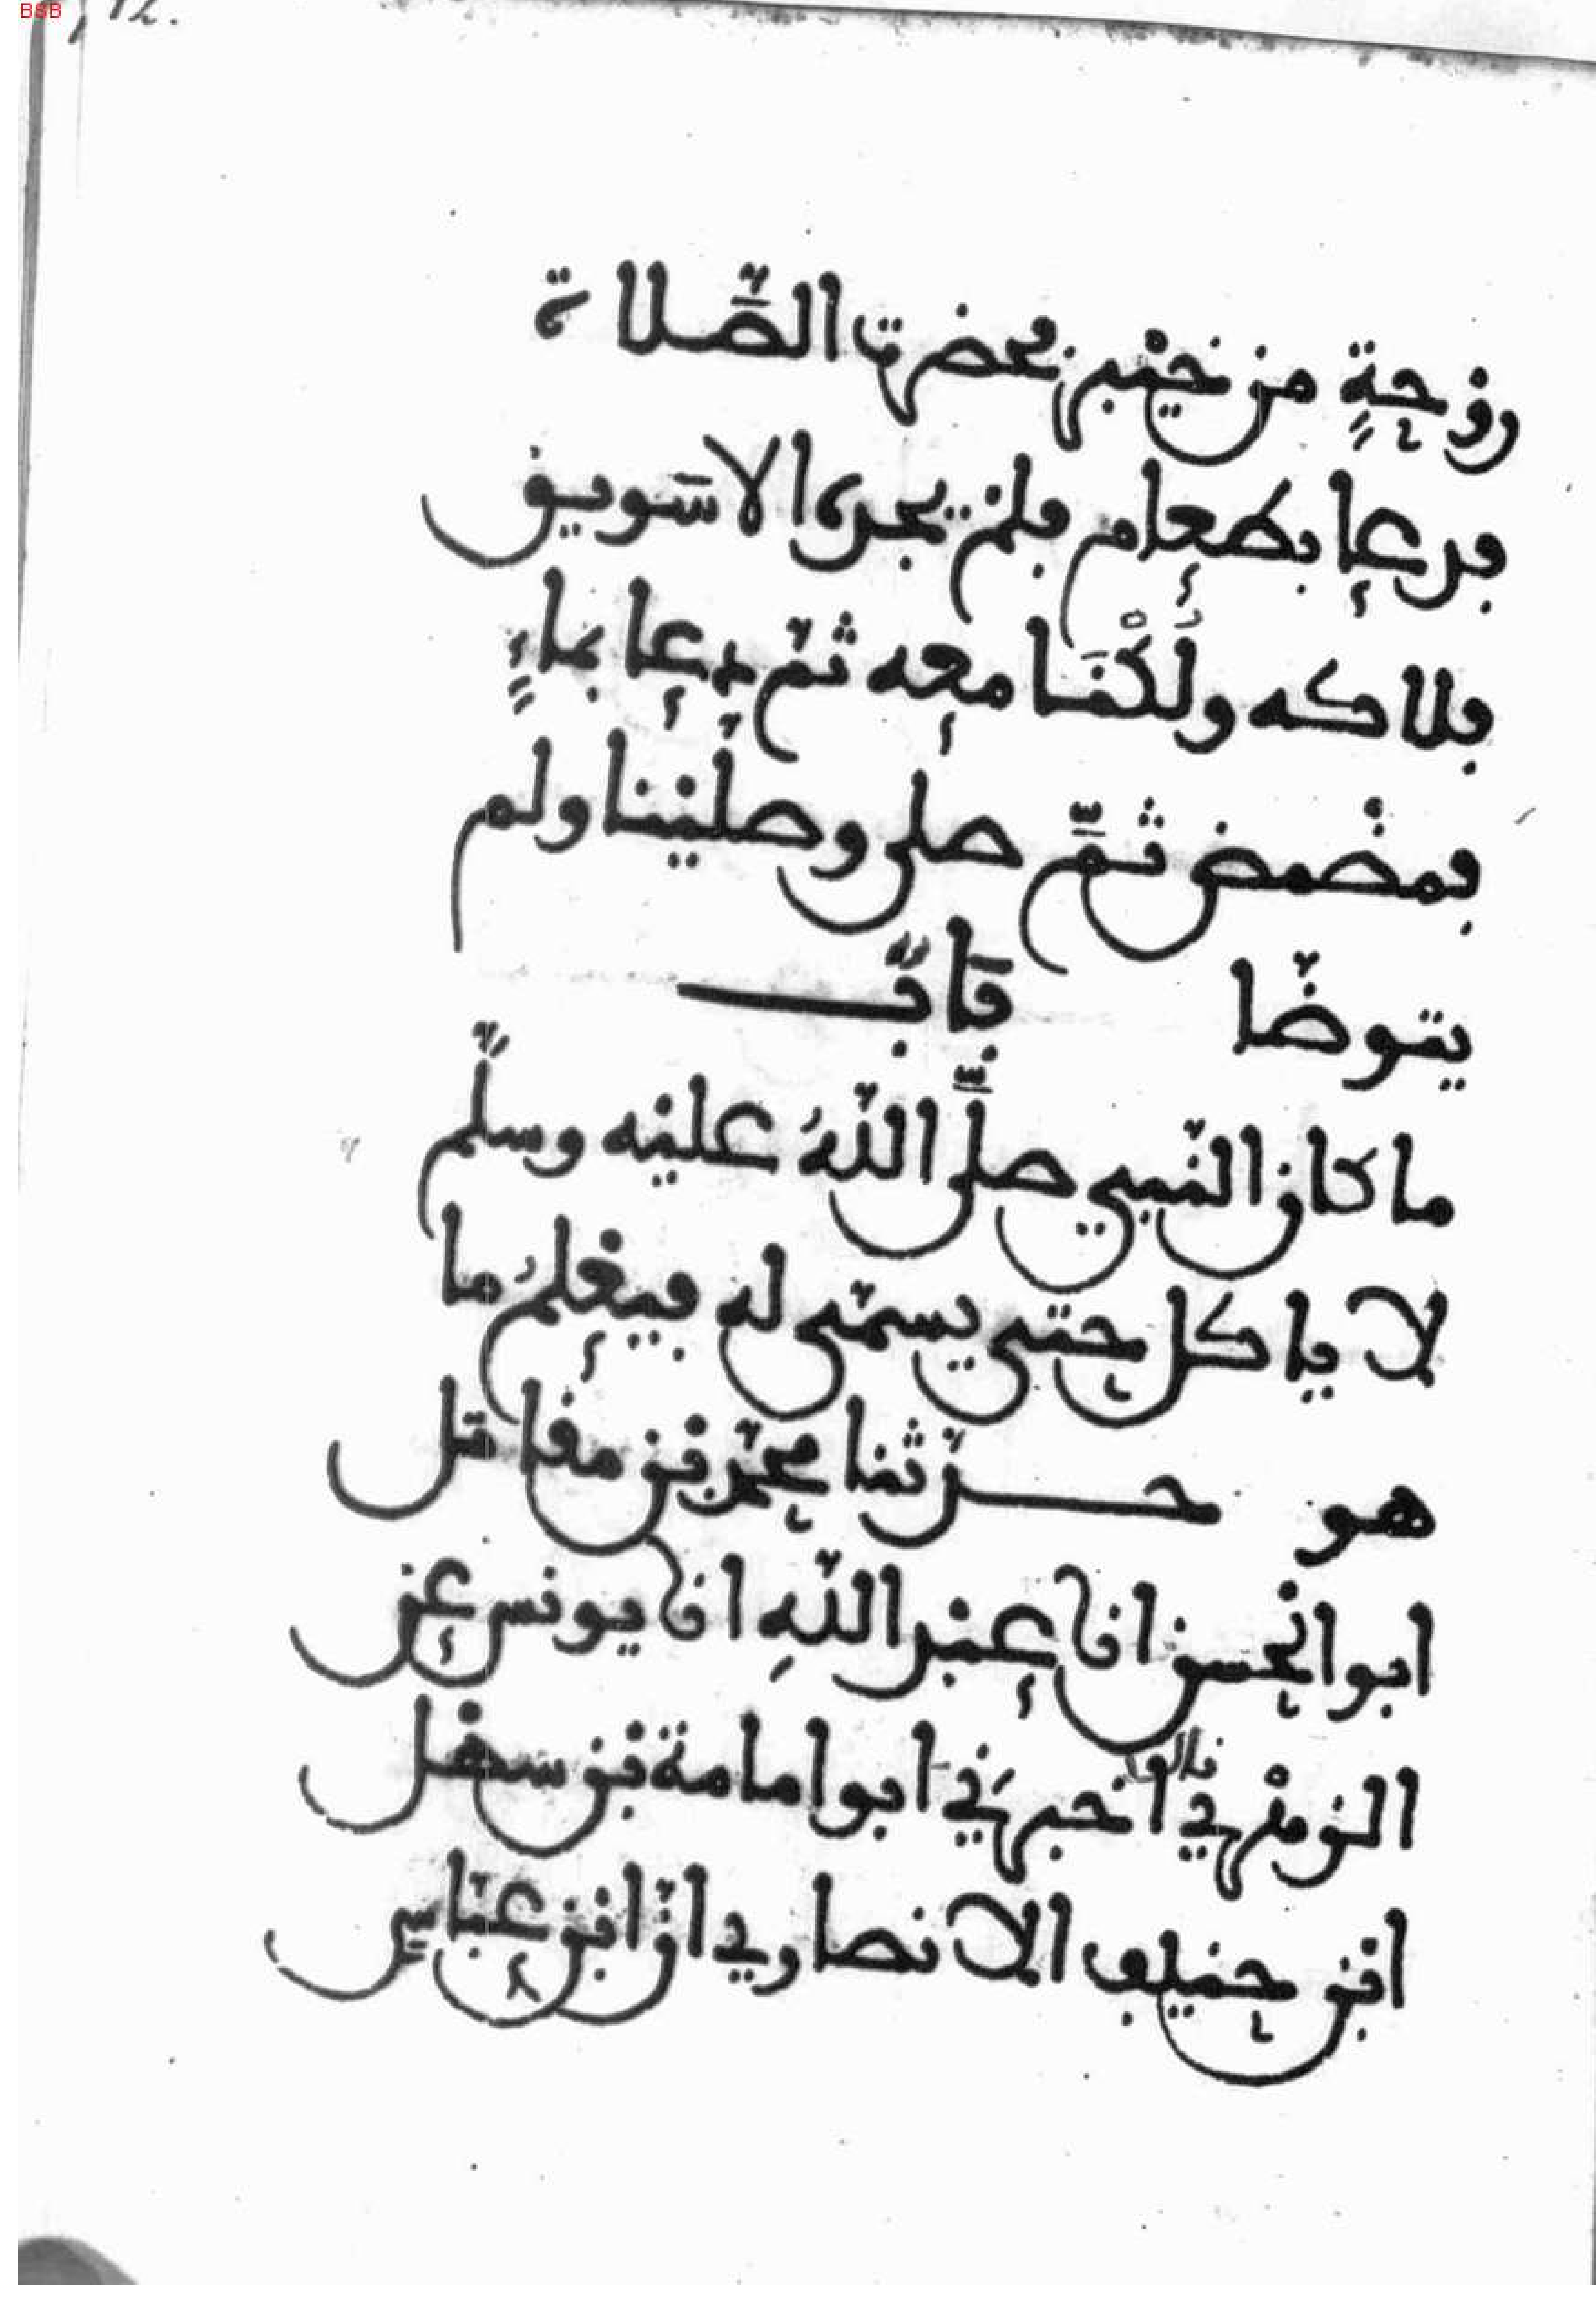 BSB
روْحةٍ من خيْبر فحضرت الصّلاة
فدعا بطعام فلم يجد الا سَويق
فلاكه ولُكْنَا معه ثمّ دعا بماءٍ
فمضْمض ثمّ صلى وصلّيْنا ولم
يتوضّا بَابٌ
ما كان النّبي صلَّى اللّهُ عليْه وسلّم
لا ياكل حتى يسمّى له فيعْلمُ ما
هو حدّثنا محمّد بْن مقاتل
ابو الْحسن انا عبْد اللّهِ انا يونس عن
الزهْري قال اخبرَني ابو امامة بْن سهْل
ابْن حنيْف الانصاري انّ ابن عبّاسٍ